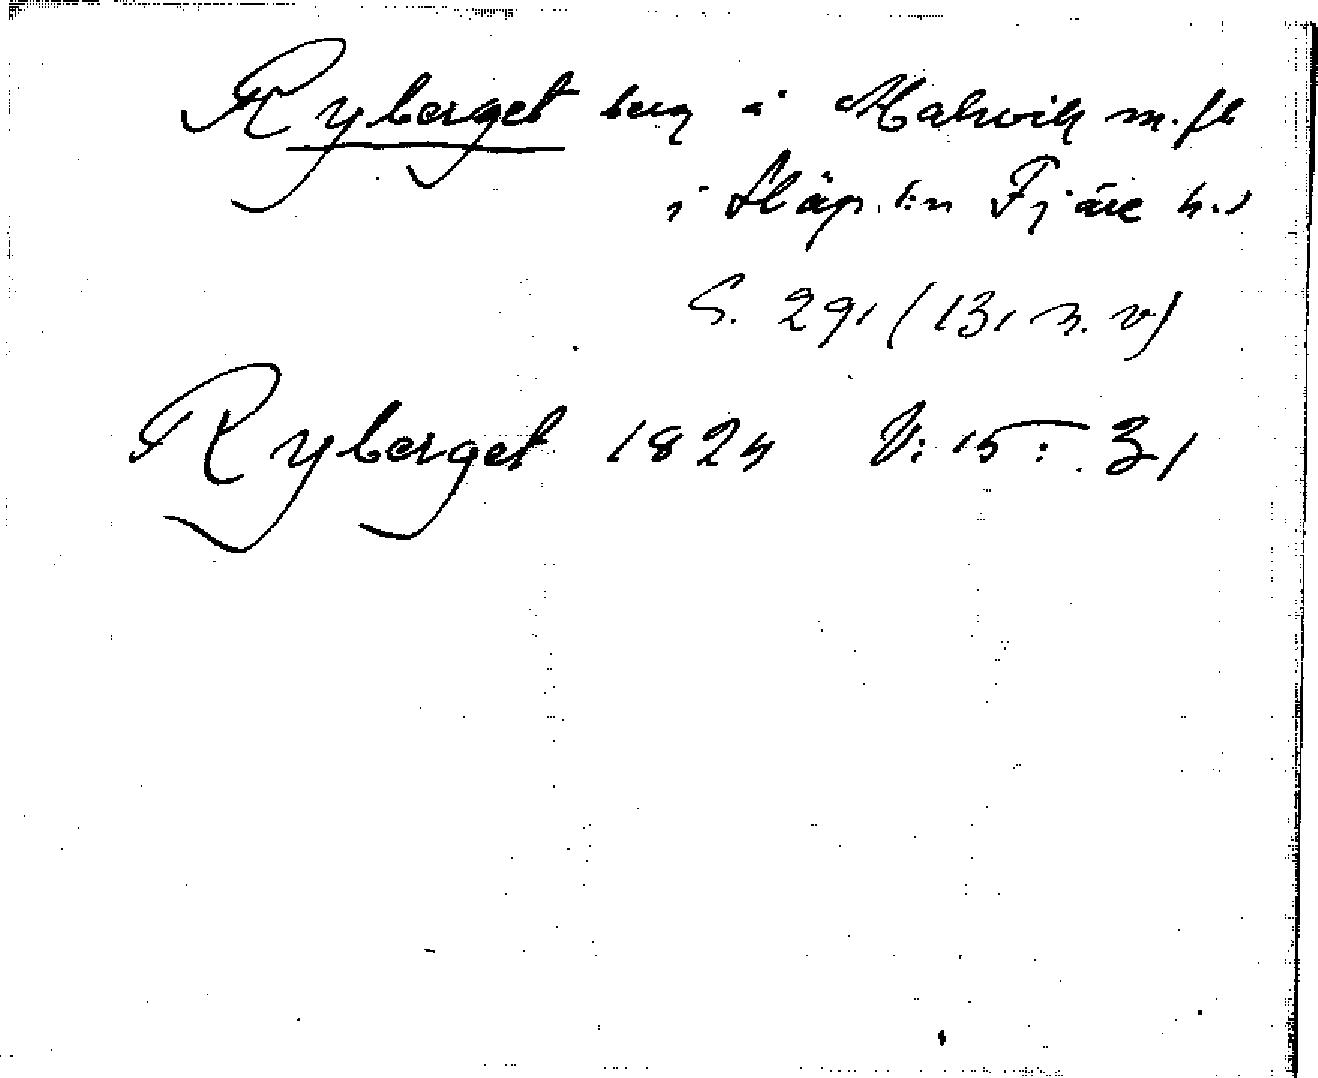 Ryberget berg å Malevik m.fl
i Släp. sn Fjäre h.d
S. 291 (131 n. v)
Ryberget 1825 V: 15: 31